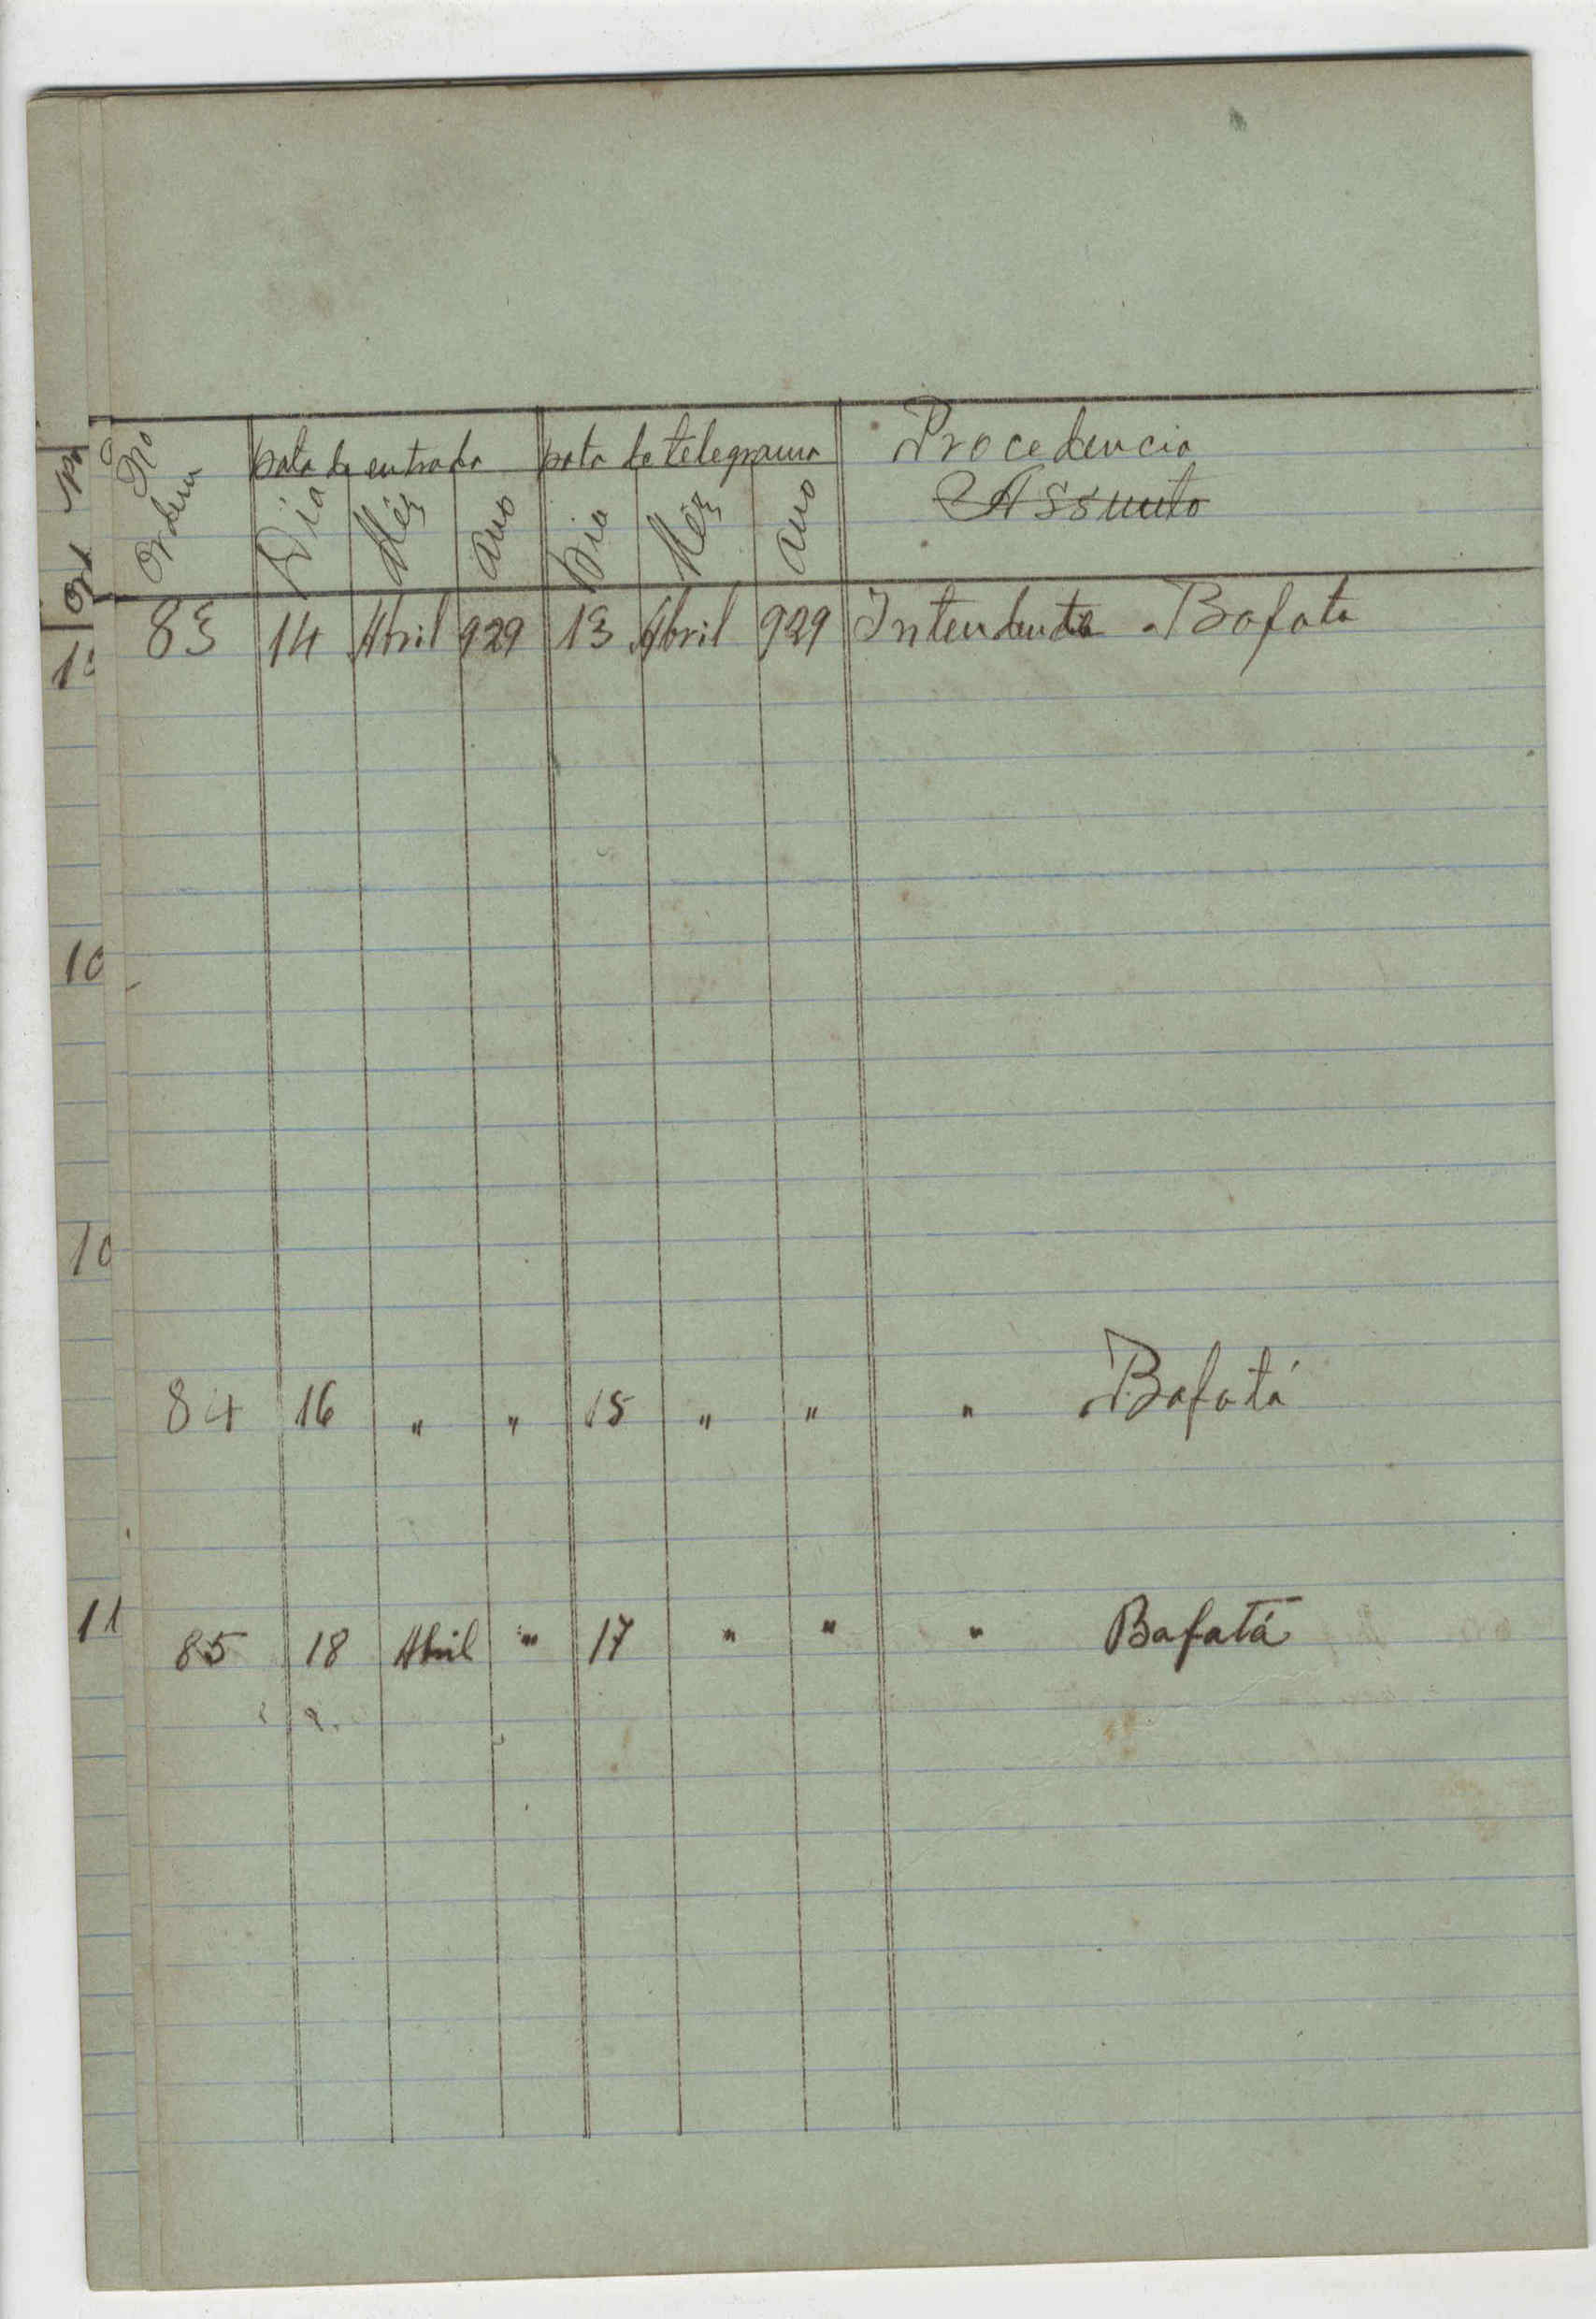 Nº Ordem Data de entrada Data do telegrama Procedencia
Dia Mêz Ano Dia Mêz Ano Assunto
83 14 Abril 929 13 Abril 929 Intendente Bafata
84 16 " " 15 " " " Bafatá
85 18 Abril " 17 " " " Bafatá
10
10
11